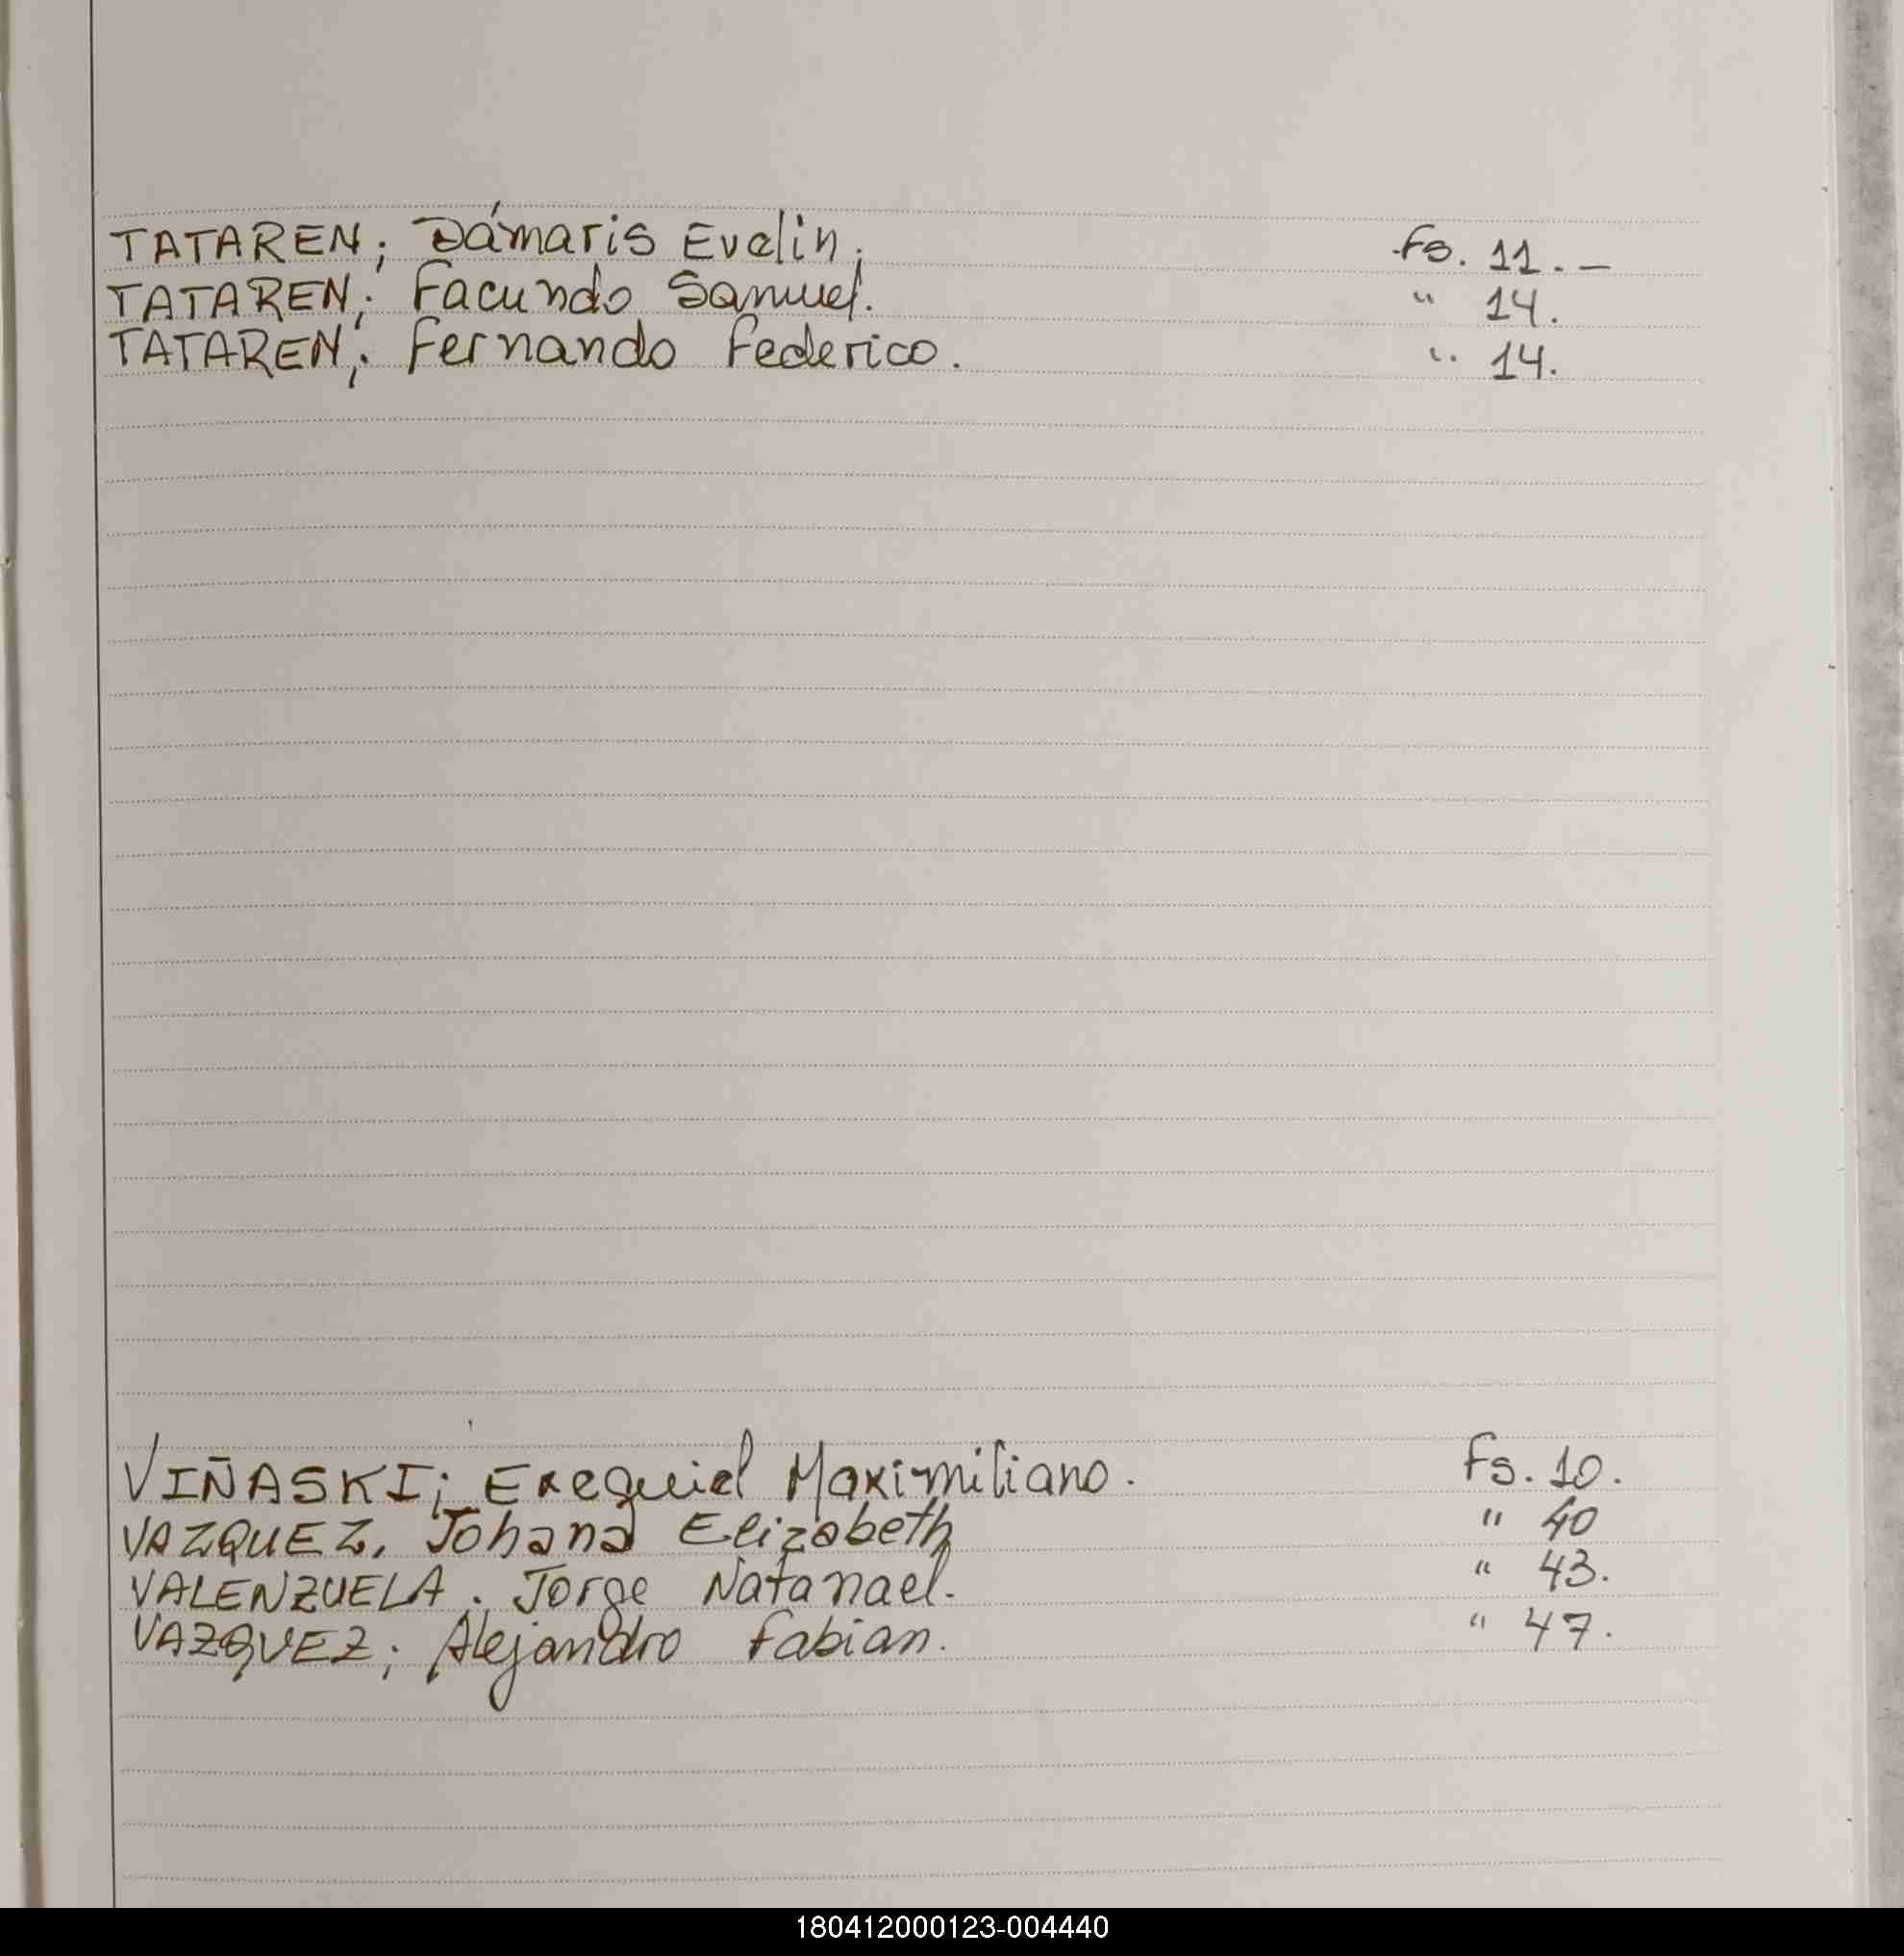 TATAREN; Dámaris Evelin. Fs. 11.-
TATAREN; Facundo Samuel. " 14.
TATAREN; Fernando Federico. " 14.
VIÑASKI; Exequiel Maximiliano. Fs. 10.
VAZQUEZ, Johana Elizabeth " 40
VALENZUELA; Jorge Natanael. " 43.
VAZQUEZ; Alejandro Fabian. " 47.
180412000123-004440